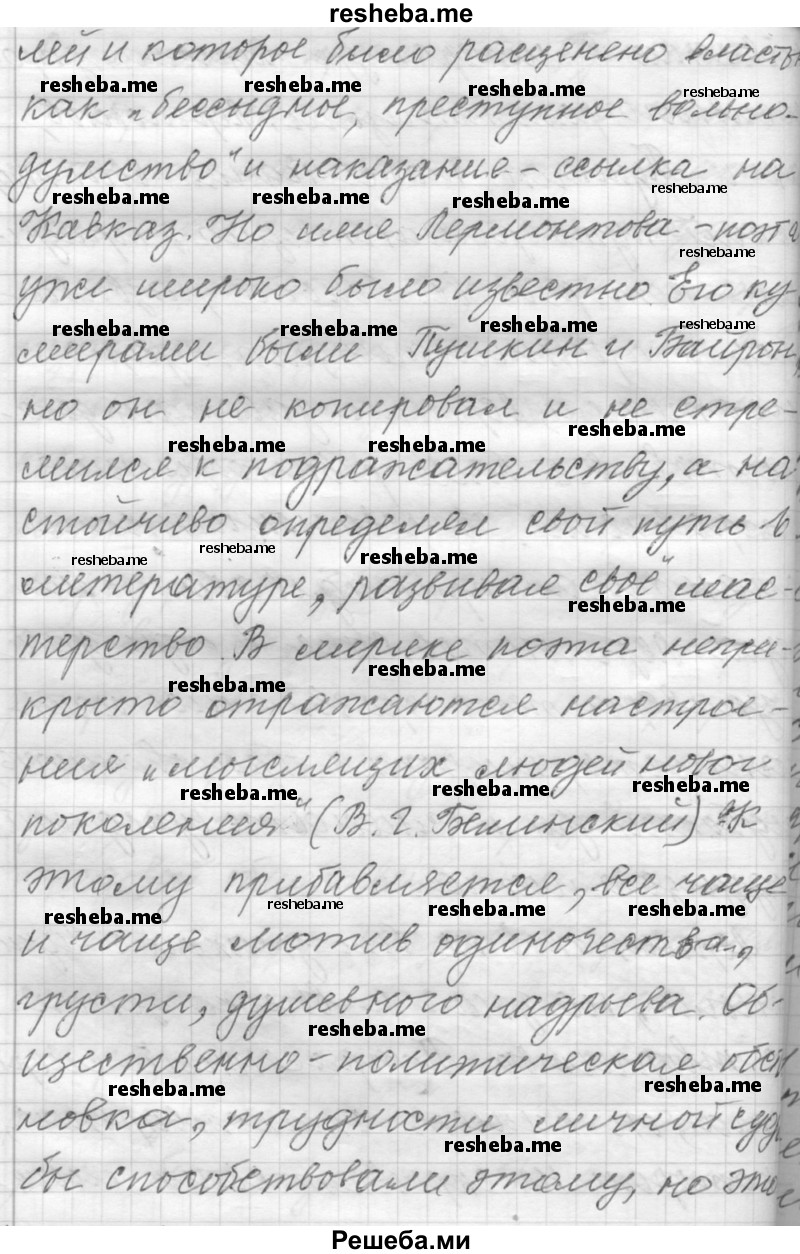 resheba.me
лей и которое было расценено власть
resheba.me resheba.me resheba.me resheba.me
как „бессыдное, преступное вольно-
думство“ и наказание - ссылка на
resheba.me resheba.me resheba.me resheba.me
Кавказ. Но имя Лермонтова - поэта
resheba.me
уже широко было известно. Его ку
resheba.me resheba.me resheba.me resheba.me
мирами были Пушкин и Байрон,
но он не копировал и не стре-
resheba.me resheba.me resheba.me
мился к подражательству, а на-
стойчиво определял свой путь в
resheba.me resheba.me resheba.me
литературе, развивал своё мас-
resheba.me
терство. В лирике поэта непри-
resheba.me resheba.me
крыто отражаются настрое-
ния „мыслящих людей новог
resheba.me resheba.me resheba.me
поколения“ (В.Г. Белинский). К
этому прибавляется, все чаще
resheba.me resheba.me resheba.me resheba.me
и чаще мотив одиночества,
грусти, душевного надрыва. Об-
resheba.me
щественно-политическая обст
resheba.me resheba.me
новка, трудности личной суд
resheba.me
бы способствовали этому, но это
Решеба.ми